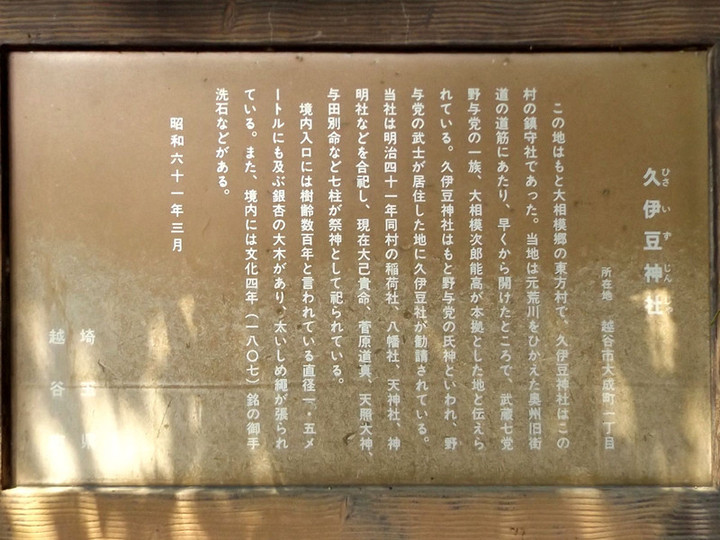 久伊豆神社
ひさいずじんじゃ
所在地 越谷市大成町一丁目
この地はもと大相模郷の東方村で、久伊豆神社はこの
村の鎮守社であった。当地は元荒川をひかえた奥州旧街
道の道筋にあたり、早くから開けたところで、武蔵七党
野与党の一族、大相模次郎能高が本拠とした地と伝えら
れている。久伊豆神社はもと野与党の氏神といわれ、野
与党の武士が居住した地に久伊豆社が勧請されている。
当社は明治四十一年同村の稲荷社、八幡社、天神社、神
明社などを合祀し、現在大己貴命、菅原道真、天照大神、
与田別命など七柱が祭神として祀られている。
境内入口には樹齢数百年と言われている直径一・五メ
ートルにも及ぶ銀杏の大木があり、太いしめ縄が張られ
ている。また、境内には文化四年（一八〇七）銘の御手
洗石などがある。
昭和六十一年三月
埼玉県
越谷